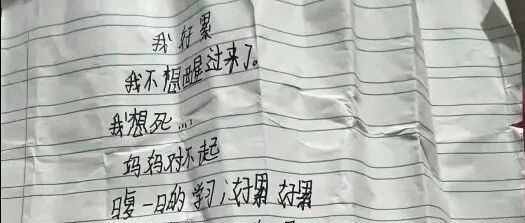 我好累
我不想醒过来了。
我想死...
妈妈对不起
日复一日的学习,好累 好累